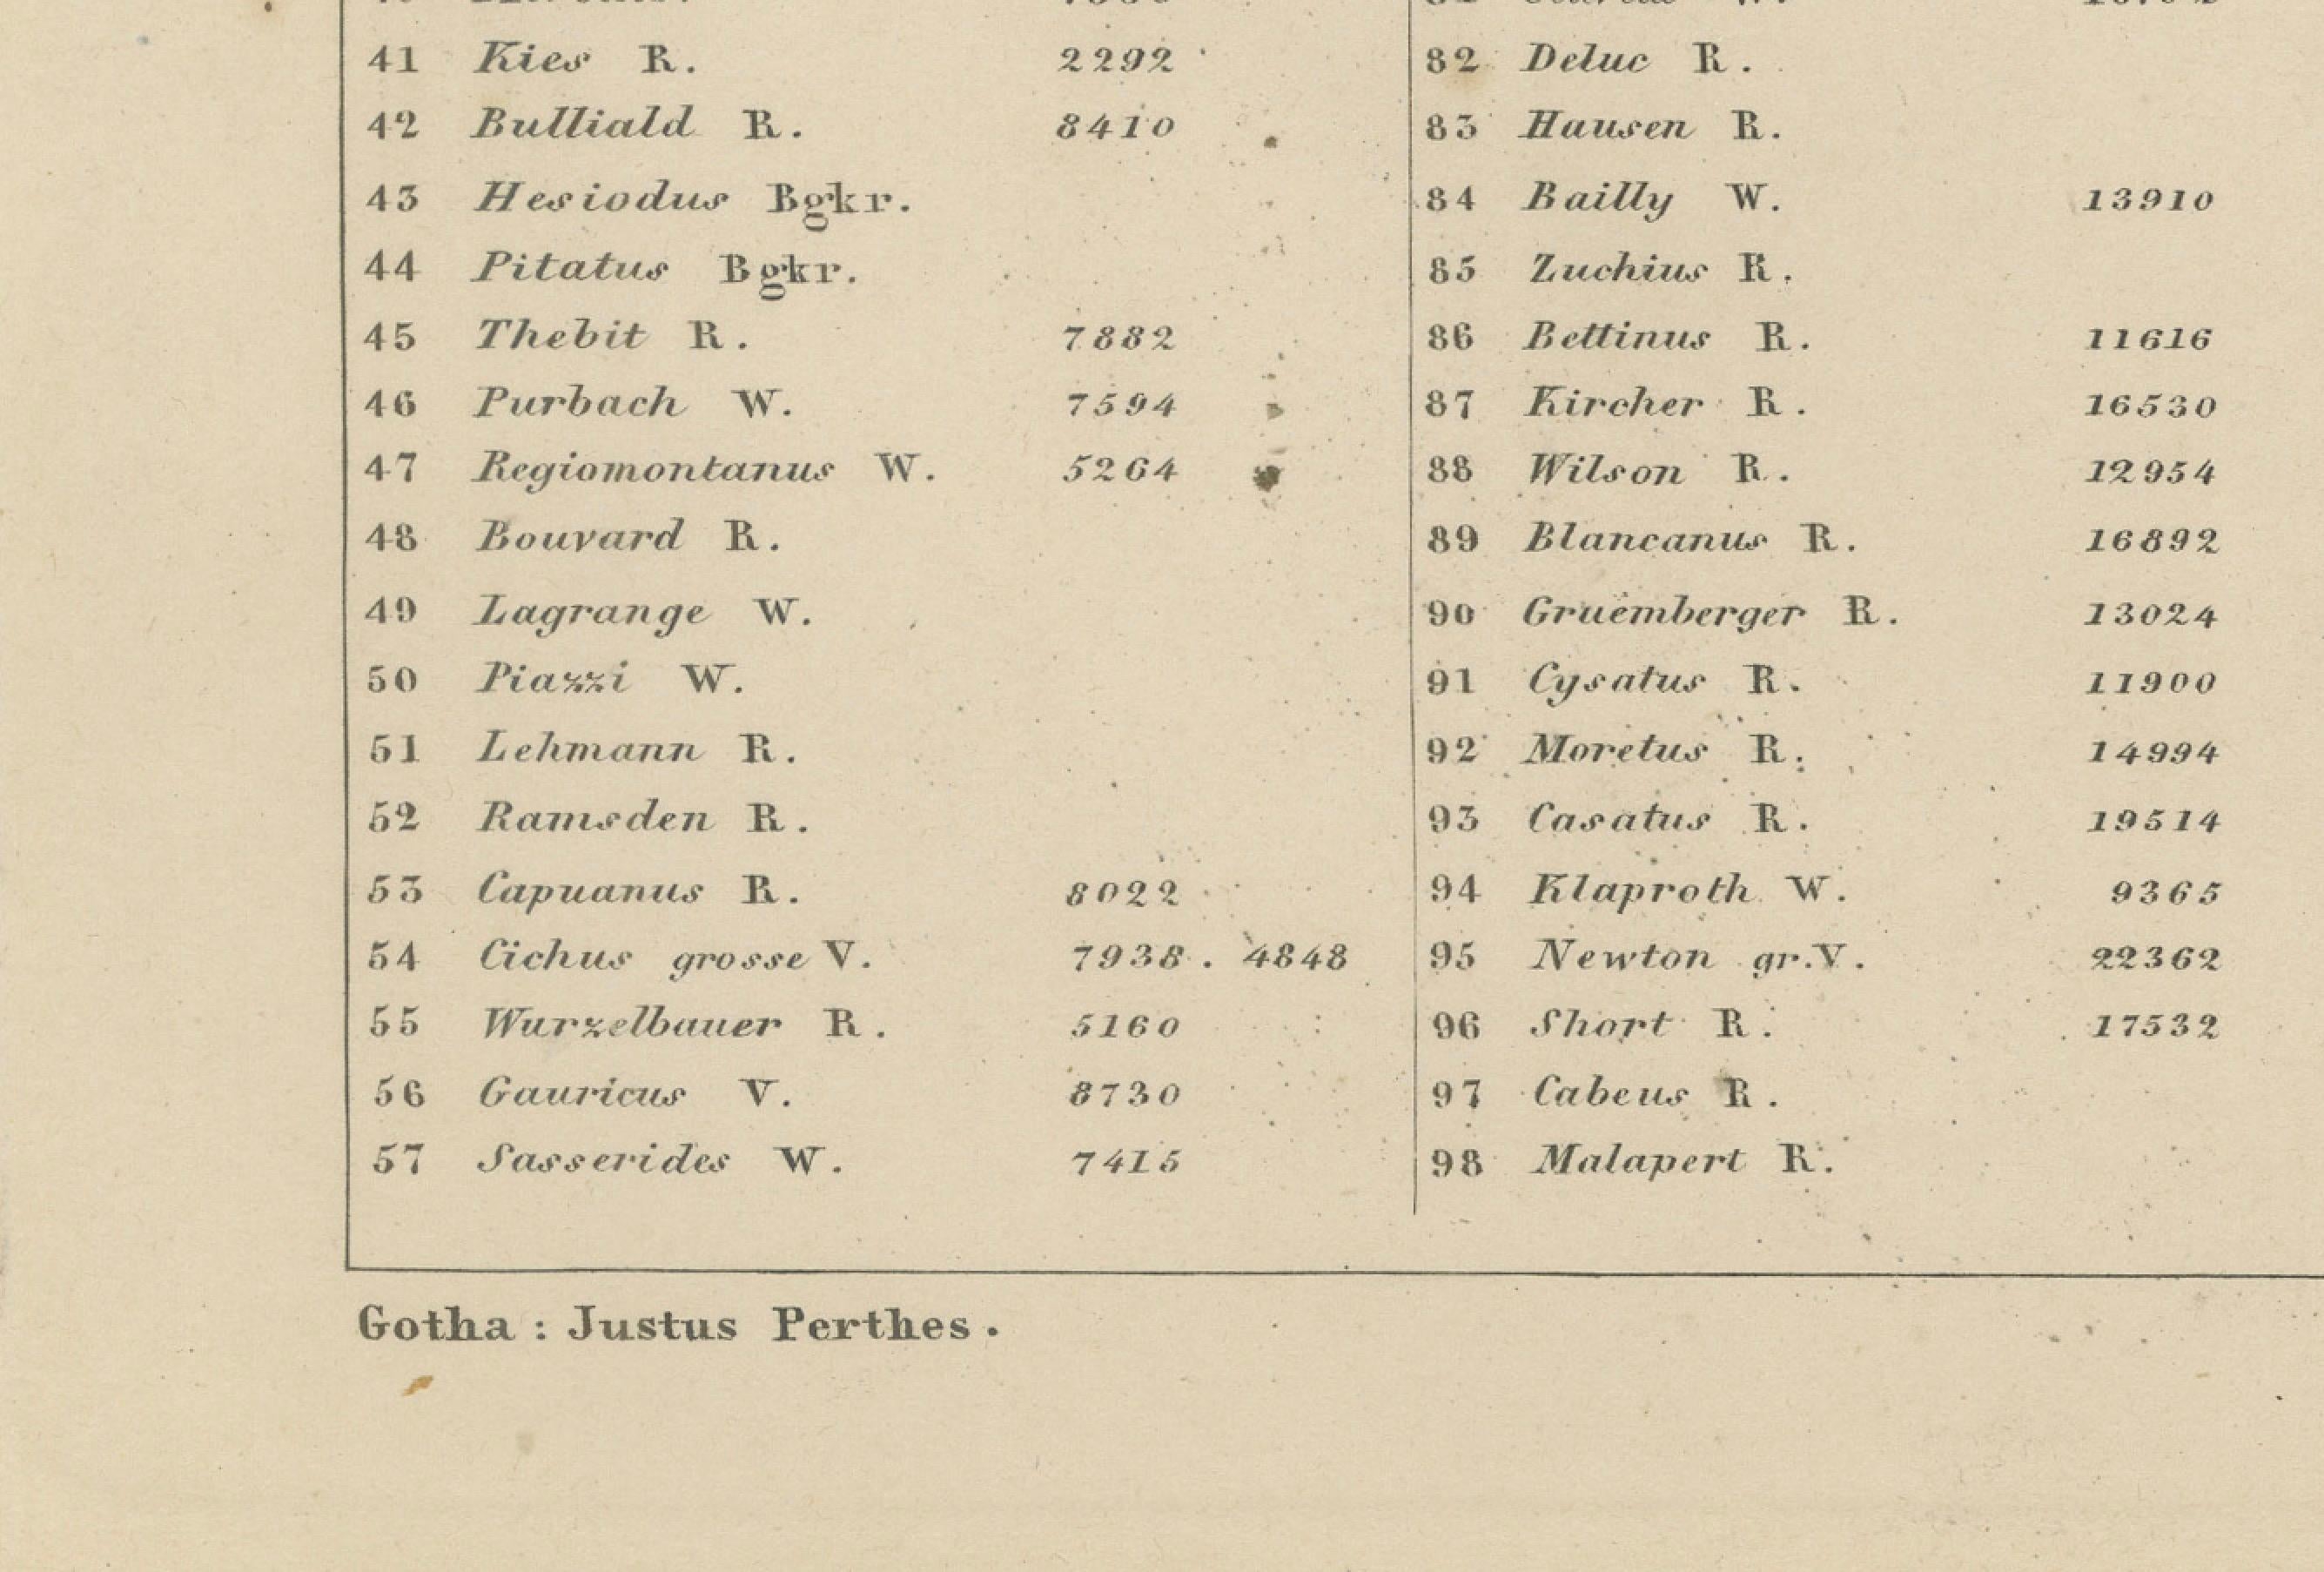 41 Kies R. 2292
42 Bulliald R. 8410
43 Hesiodus Bgkr.
44 Pitatus Bgkr.
45 Thebit R. 7882
46 Purbach W. 7594
47 Regiomontanus W. 5264
48 Bouvard R.
49 Lagrange W.
50 Piazzi W.
51 Lehmann R.
52 Ramsden R.
53 Capuanus R. 8022
54 Cichus grosse V. 7938. 4848
55 Wurzelbauer R. 5160
56 Gauricus V. 8730
57 Sasserides W. 7415
82 Deluc R.
83 Hausen R.
84 Bailly W. 13910
85 Zuchius R.
86 Bettinus R. 11616
87 Kircher R. 16530
88 Wilson R. 12954
89 Blancanus R. 16892
90 Gruemberger R. 13024
91 Cysatus R. 11900
92 Moretus R. 14994
93 Casatus R. 19514
94 Klaproth W. 9365
95 Newton gr.V. 22362
96 Short R. 17532
97 Cabeus R.
98 Malapert R.
Gotha: Justus Perthes.